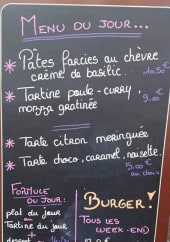 MENU DU JOUR...
* Pâtes farcies au chèvre
crème de basilic. 10,50€
* Tartine poule-curry
mozza gratinée 9.00€
* Tarte citron meringuée
* Tarte choco, caramel, noisette.
5.00€
au choix
FORMULE
DU JOUR:
plat du jour
Tartine du jour
dessert
BURGER!
TOUS LES
(WEEK-END)